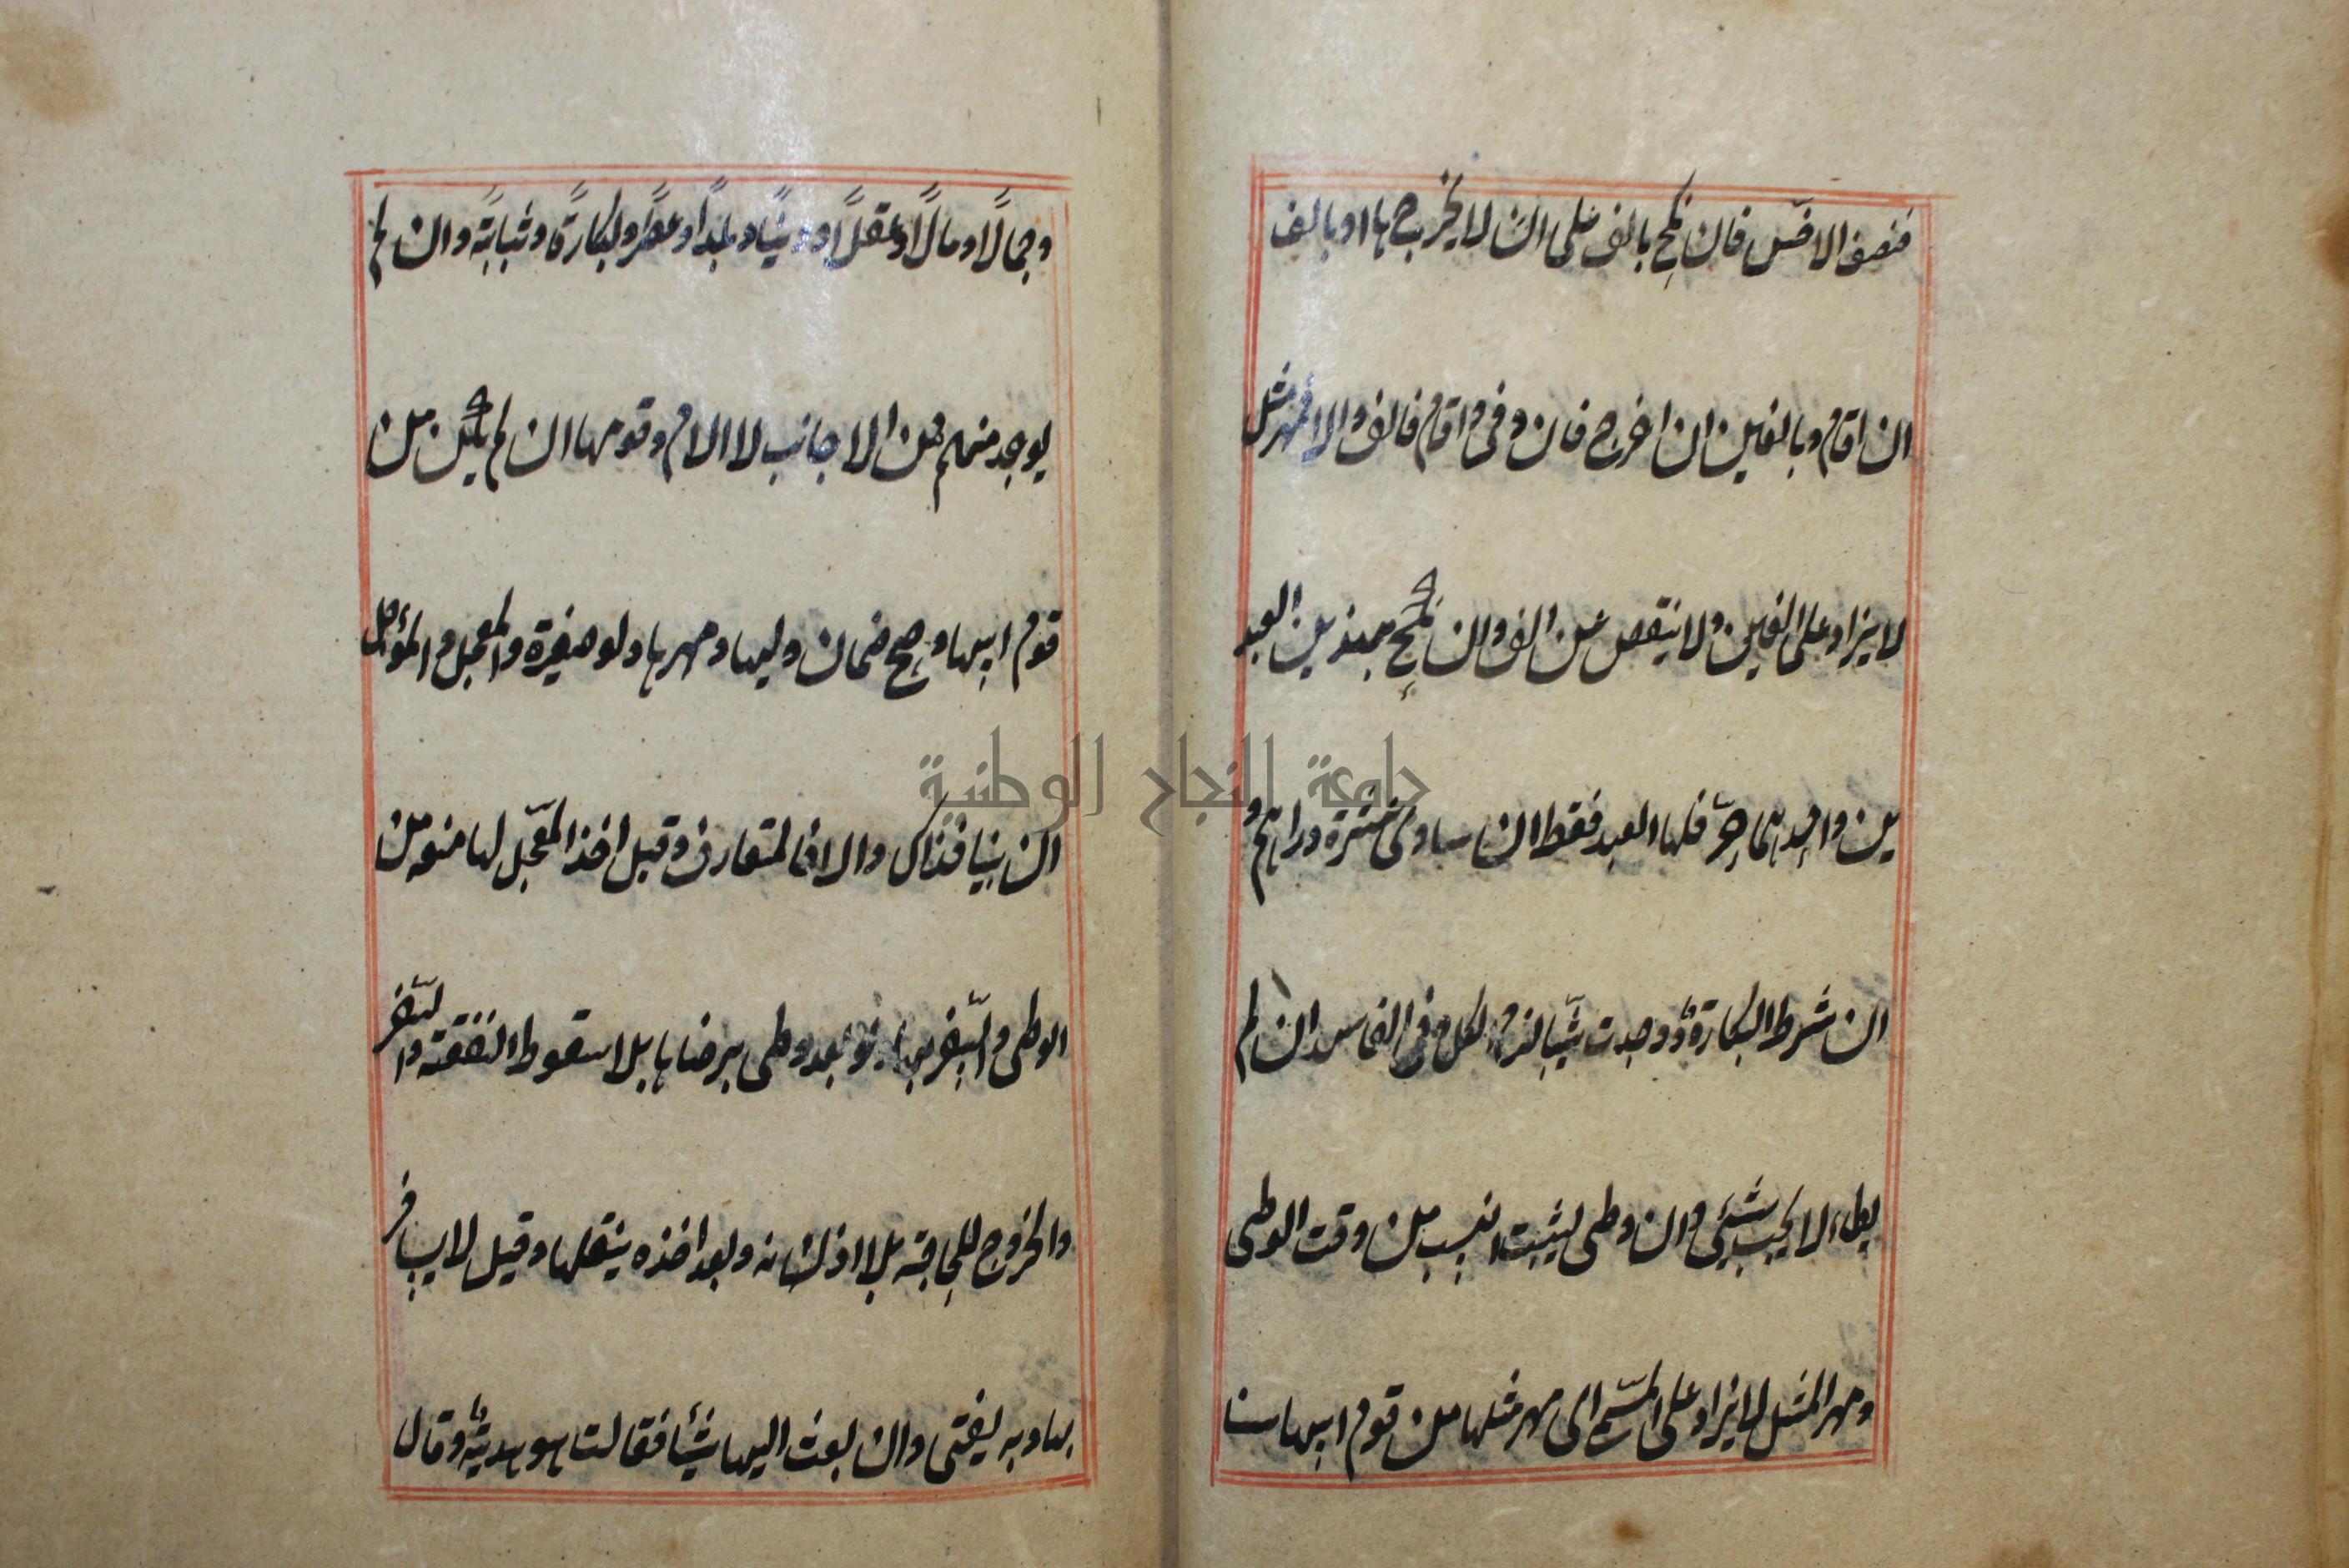 فنصف الاخسّ فان نكح بالف على ان لا يخرجها او بالف
ان اقام وبالفين ان اخرج فان وفى واقام فالف والا فمهر مثل
لا يزاد على الفين ولا ينقص عن الف وان نكح بهذين العبد
ين واحدهما حرّ فلها العبد فقط ان ساوى عشرة دراهم و
ان شرط البكارة ووجدت ثيّبا لزم الكل وفى الفاسد ان لم
يطاء لا يجب شيئ وان وطى يثبت النسب من وقت الوطى
ومهر المثل لا يزاد على المسمّى اى مهر مثلها من قوم ابيها سنا
وجمالًا ومالًا وعقلًا ودينًا وبلدًا وعصرًا وبكارةً وثيابةً وان لم
يوجد منهم فمن الاجانب لا الام وقومها ان لم يكن من
قوم ابيها وصح ضمان وليها ومهرها ولو صغيرة والمعجل والمؤجل
ان بينا فذاك والا فالمتعارف وقبل اخذ المعجّل لها منعه من
الوطى والسّفر بها ولو بعد وطى برضاها بلا سقوط النفقة والسّفر
والخروج للحاجة بلا اذنه وبعد اخذه ينقلها وقيل لا يسافر
بها وبه يفتى وان بعث اليها شيئا فقالت هو هديّة وقال
جامعة النجاح الوطنية